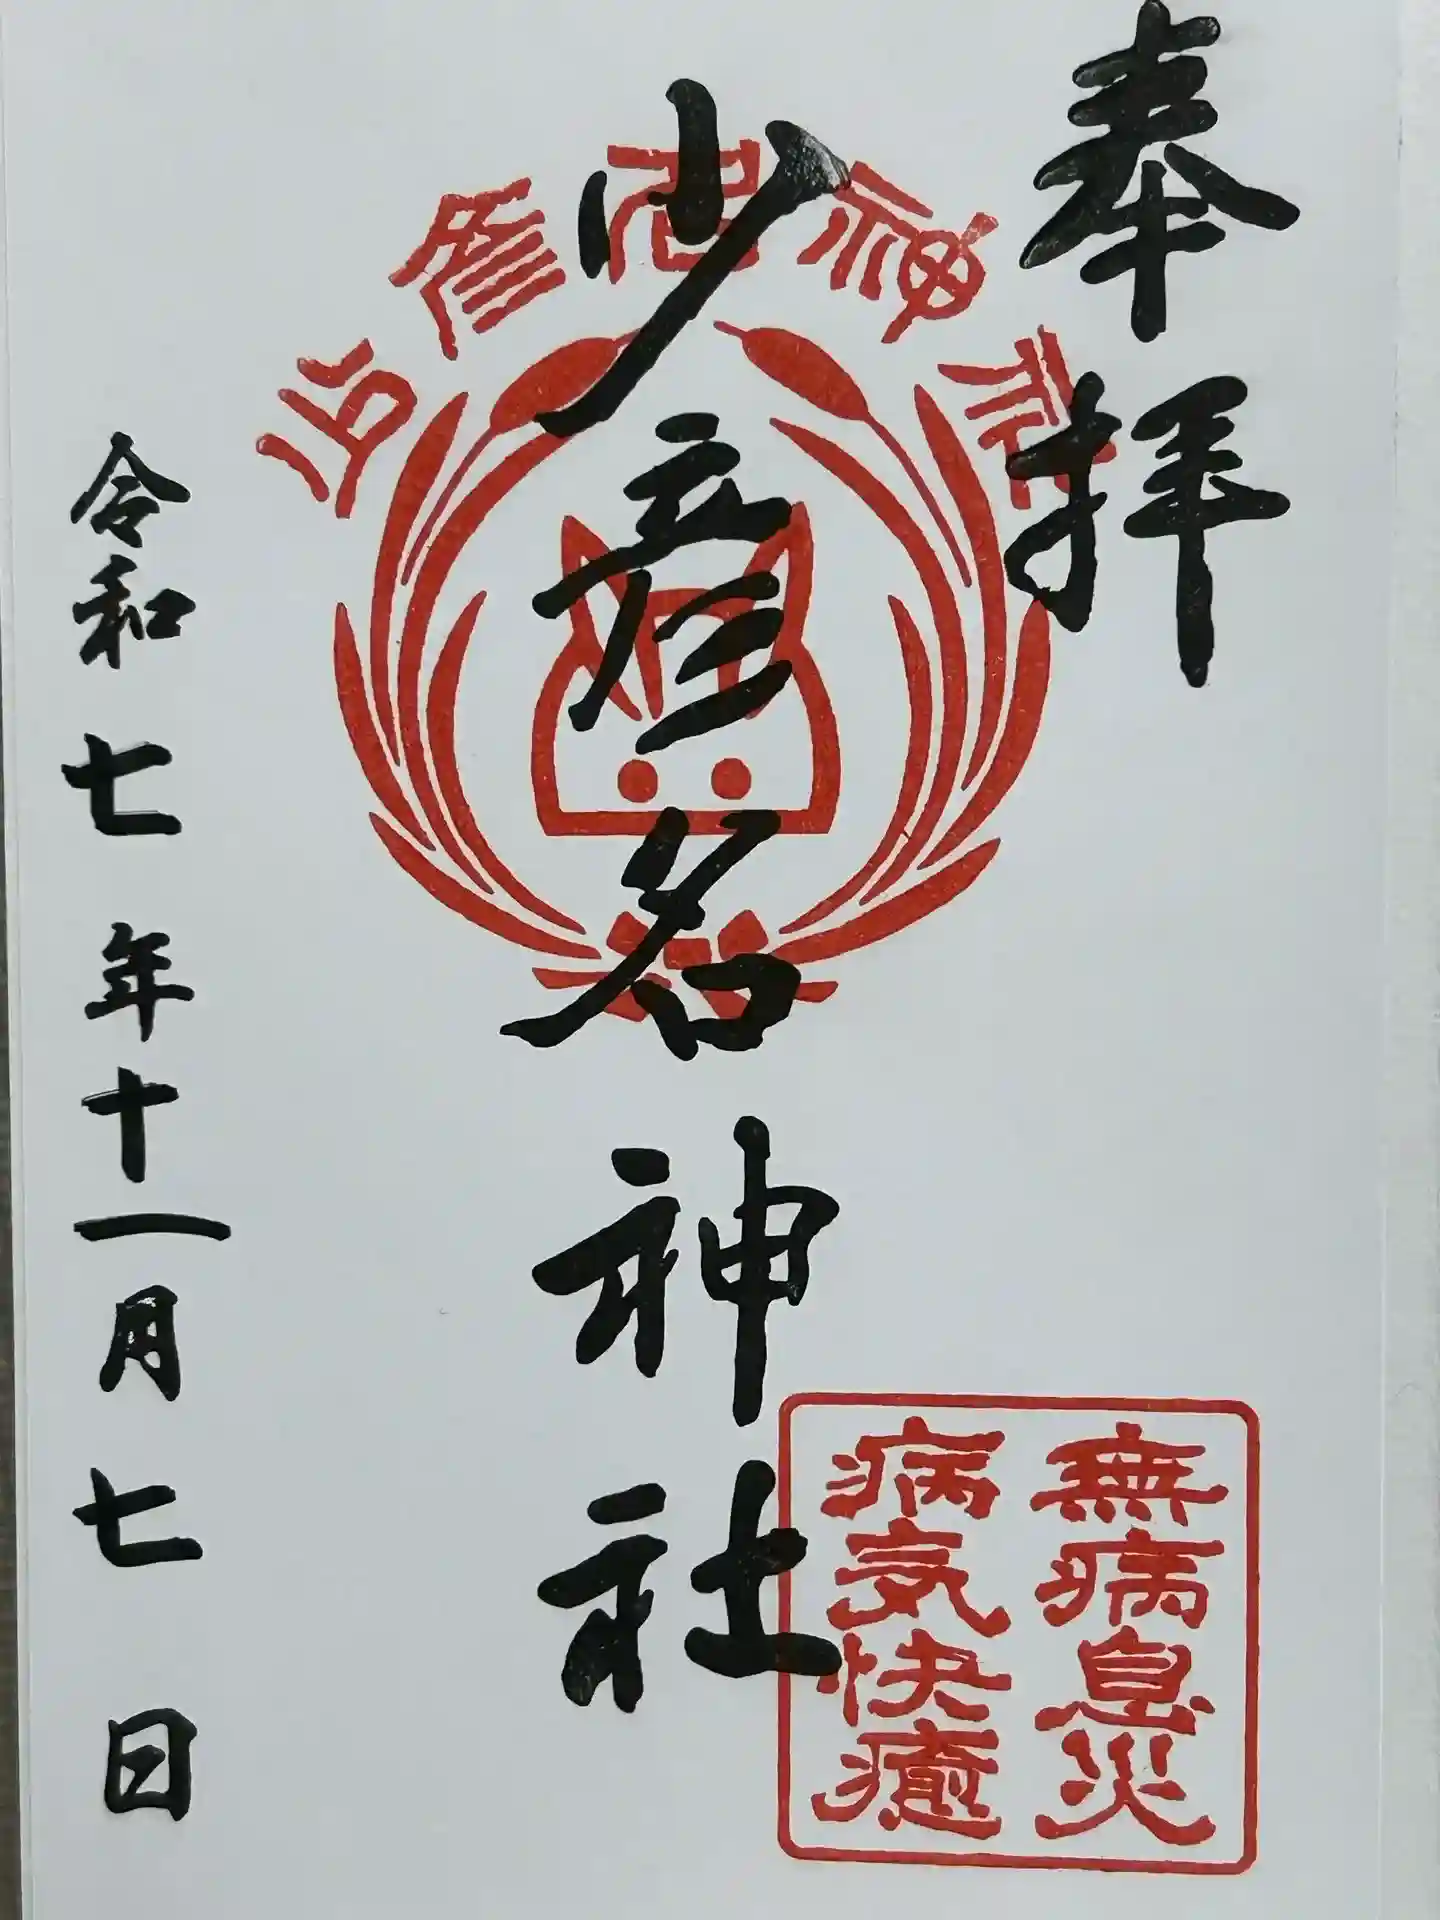 奉拝
少彦名神社
無病息災
病気快癒
令和七年十一月七日